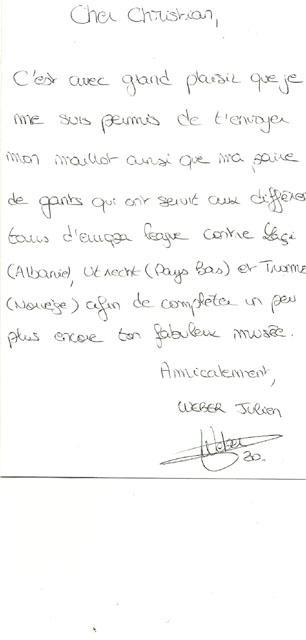 Cher Christian,
C'est avec grand plaisir que je
me suis permis de t'envoyer
mon maillot ainsi que ma paire
de gants qui ont servit aux différen
tours d'europa league contre Laçi
(Albanie), Utrecht (Pays Bas) et Tromsø
(Norvège) afin de compléter un peu
plus encore ton fabuleux musée.
Amicalement,
WEBER Julien
Weber
20.